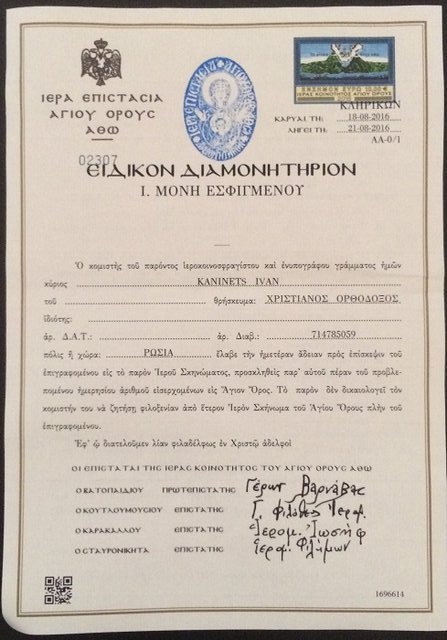 ΙΕΡΑ ΕΠΙΣΤΑΣΙΑ
ΑΓΙΟΥ ΟΡΟΥΣ
ΑΘΩ
ΕΝΣΗΜΟΝ ΕΥΡΩ 10,00 €
ΙΕΡΑΣ ΚΟΙΝΟΤΗΤΟΣ ΑΓΙΟΥ ΟΡΟΥΣ
ΚΛΗΡΙΚΩΝ
ΚΑΡΥΑΙ ΤΗ: 18-08-2016
ΛΗΓΕΙ ΤΗ: 21-08-2016
ΑΑ-0/1
02307
ΕΙΔΙΚΟΝ ΔΙΑΜΟΝΗΤΗΡΙΟΝ
Ι. ΜΟΝΗ ΕΣΦΙΓΜΕΝΟΥ
Ὁ κομιστὴς τοῦ παρόντος ἱεροκοινοσφραγίστου καὶ ἐνυπογράφου γράμματος ἡμῶν
κύριος KANINETS IVAN
τοῦ θρήσκευμα: ΧΡΙΣΤΙΑΝΟΣ ΟΡΘΟΔΟΞΟΣ
ἰδιότης:
ἀρ. Δ.Α.Τ.: ἀρ. Διαβ.: 714785059
πόλις ἢ χώρα: ΡΩΣΙΑ ἔλαβε τὴν ἡμετέραν ἄδειαν πρὸς ἐπίσκεψιν τοῦ
ἐπιγραφομένου εἰς τὸ παρὸν Ἱεροῦ Σκηνώματος, προσκληθεὶς παρ' αὐτοῦ πέραν τοῦ προβλε-
πομένου ἡμερησίου ἀριθμοῦ εἰσερχομένων εἰς Ἅγιον Ὄρος. Τὸ παρὸν δὲν δικαιολογεῖ τὸν
κομιστήν του νὰ ζητήσῃ φιλοξενίαν ἀπὸ ἕτερον Ἱερὸν Σκήνωμα τοῦ Ἁγίου Ὄρους πλὴν τοῦ
ἐπιγραφομένου.
Ἐφ' ᾧ διατελοῦμεν λίαν φιλαδέλφως ἐν Χριστῷ ἀδελφοὶ
ΟΙ ΕΠΙΣΤΑΤΑΙ ΤΗΣ ΙΕΡΑΣ ΚΟΙΝΟΤΗΤΟΣ ΤΟΥ ΑΓΙΟΥ ΟΡΟΥΣ ΑΘΩ
Ο ΒΑΤΟΠΑΙΔΙΟΥ ΠΡΩΤΕΠΙΣΤΑΤΗΣ Γέρων Βαρνάβας
Ο ΚΟΥΤΛΟΥΜΟΥΣΙΟΥ ΕΠΙΣΤΑΤΗΣ Γ.
Ο ΚΑΡΑΚΑΛΛΟΥ ΕΠΙΣΤΑΤΗΣ Ἱερομ. Ἰωσὴφ
Ο ΣΤΑΥΡΟΝΙΚΗΤΑ ΕΠΙΣΤΑΤΗΣ Ἱερομ. Φιλήμων
1696614